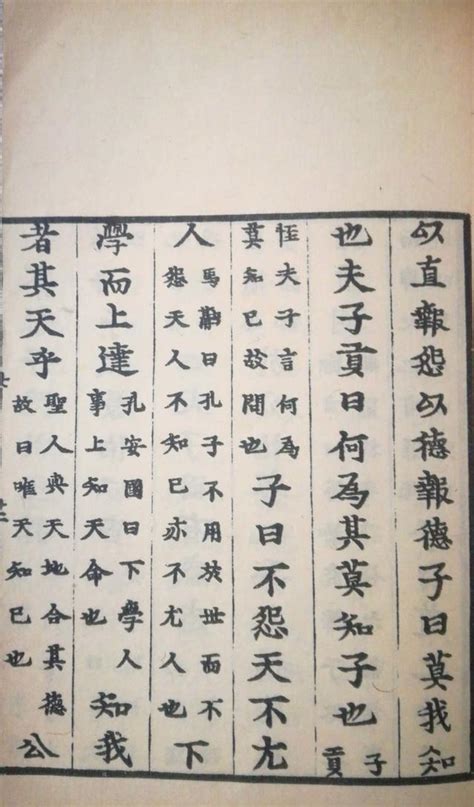 以直報怨以德報德子曰莫我知
也夫子貢曰何為其莫知子也子貢
怪夫子言何為莫知己故問也子曰不怨天不尤
人馬融曰孔子不用於世而不怨天人不知己亦不尤人也下
學而上達孔安國曰下學人事上知天命也知我
者其天乎聖人與天地合其德故曰唯天知己也公